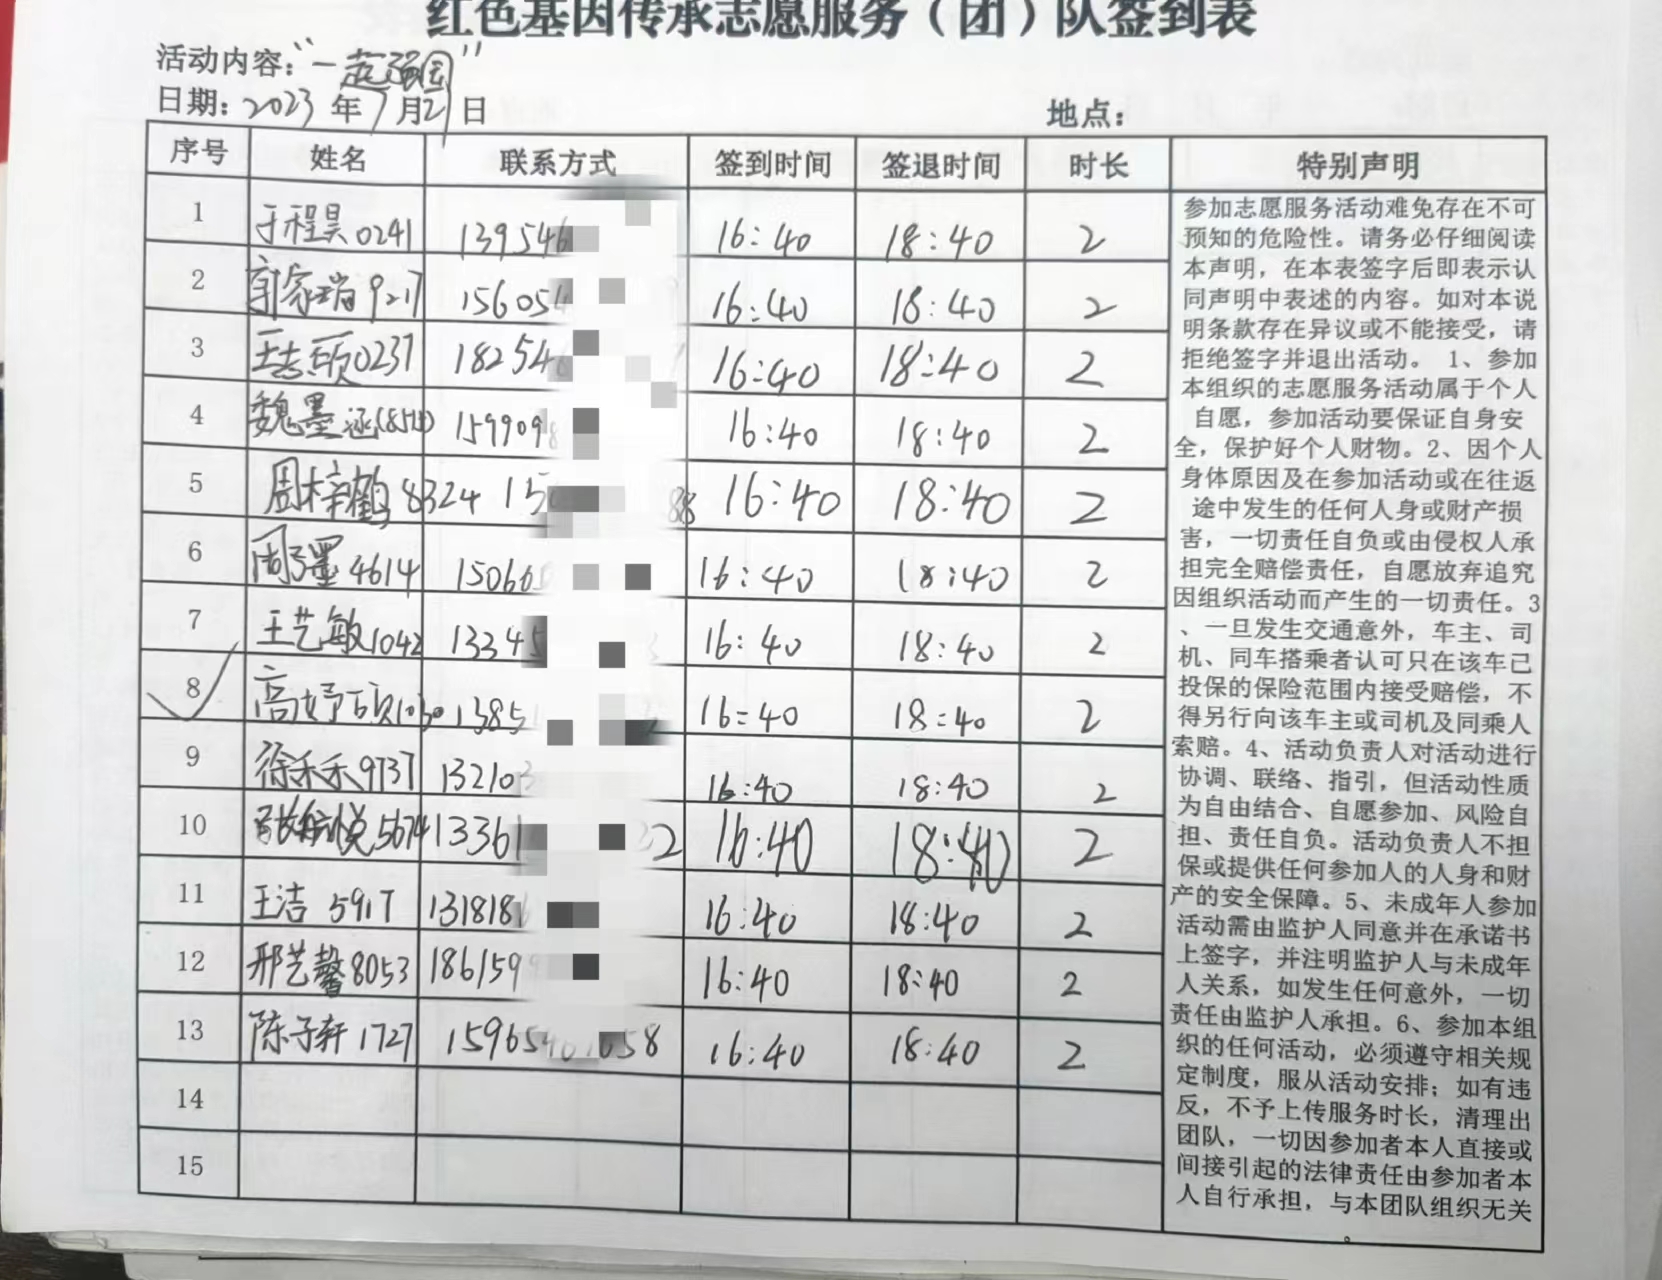 红色基因传承志愿服务（团）队签到表
活动内容：“一起强国”
日期：2023年7月21日 地点：
序号 姓名 联系方式 签到时间 签退时间 时长 特别声明
1 于程昊0241 139546 16:40 18:40 2
2 郭家瑞9217 156054 16:40 18:40 2
3 0237 182546 16:40 18:40 2
4 魏墨涵 159909 16:40 18:40 2
5 周梓鹤8324 15 88 16:40 18:40 2
6 周子墨4614 15066 16:40 18:40 2
7 王艺敏1042 13345 16:40 18:40 2
8 高妤硕1030 1385 16:40 18:40 2
9 徐禾禾9737 132103 16:40 18:40 2
10 张航悦5674 13361 2 16:40 18:40 2
11 王洁 5917 131818 16:40 18:40 2
12 邢艺馨8053 186159 16:40 18:40 2
13 陈子轩1727 15965 58 16:40 18:40 2
14
15
参加志愿服务活动难免存在不可
预知的危险性。请务必仔细阅读
本声明，在本表签字后即表示认
同声明中表述的内容。如对本说
明条款存在异议或不能接受，请
拒绝签字并退出活动。 1、参加
本组织的志愿服务活动属于个人
自愿，参加活动要保证自身安
全，保护好个人财物。2、因个人
身体原因及在参加活动或在往返
途中发生的任何人身或财产损
害，一切责任自负或由侵权人承
担完全赔偿责任，自愿放弃追究
因组织活动而产生的一切责任。3
、一旦发生交通意外，车主、司
机、同车搭乘者认可只在该车已
投保的保险范围内接受赔偿，不
得另行向该车主或司机及同乘人
索赔。4、活动负责人对活动进行
协调、联络、指引，但活动性质
为自由结合、自愿参加、风险自
担、责任自负。活动负责人不担
保或提供任何参加人的人身和财
产的安全保障。5、未成年人参加
活动需由监护人同意并在承诺书
上签字，并注明监护人与未成年
人关系，如发生任何意外，一切
责任由监护人承担。6、参加本组
织的任何活动，必须遵守相关规
定制度，服从活动安排；如有违
反，不予上传服务时长，清理出
团队，一切因参加者本人直接或
间接引起的法律责任由参加者本
人自行承担，与本团队组织无关
。